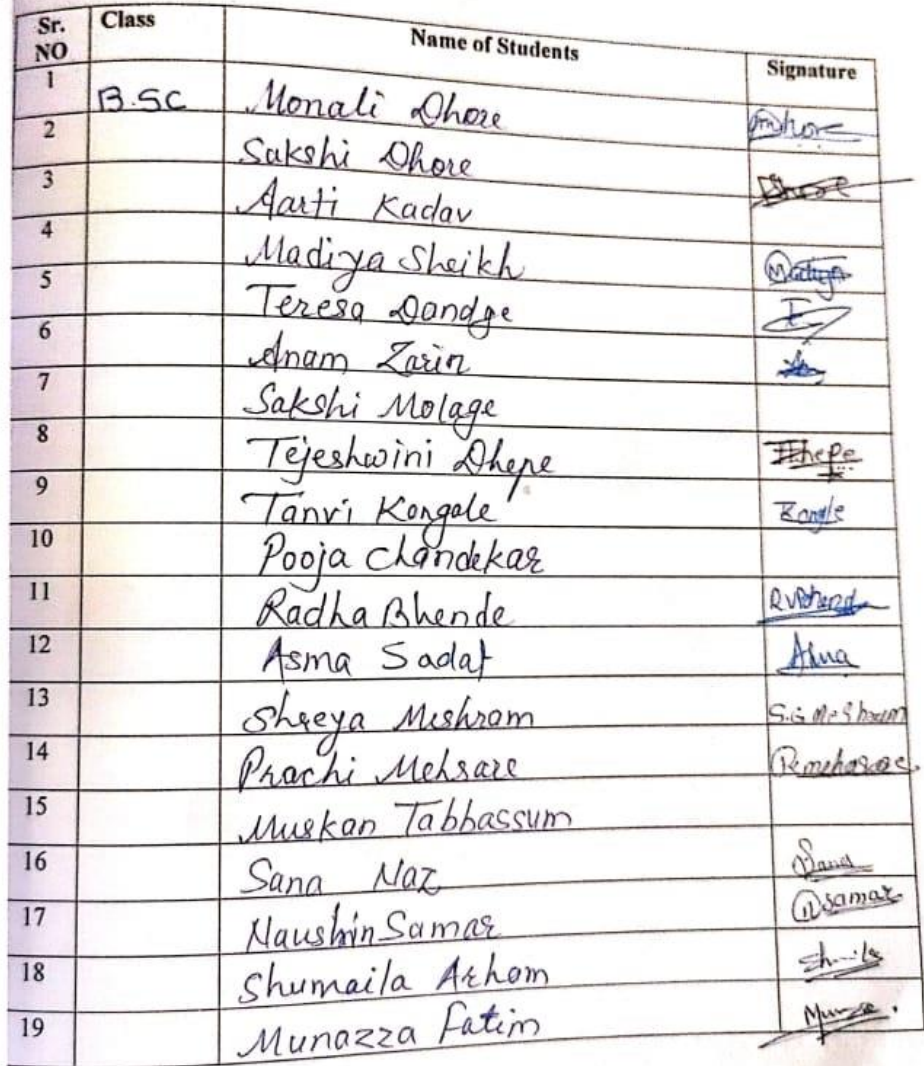 Sr. NO Class Name of Students Signature
1 B.SC Monali Dhore
2 Sakshi Dhore
3 Aarti Kadav
4 Madiya Sheikh Madiya
5 Teresa Dandge
6 Anam Zarin
7 Sakshi Molage
8 Tejeshwini Dhepe Dhepe
9 Tanvi Kongale Kongle
10 Pooja Chandekar
11 Radha Bhende
12 Asma Sadaf
13 Shreya Meshram S.G Meshram
14 Prachi Mehsare
15 Muskan Tabbassum
16 Sana Naz Sana
17 Naushin Samar Samar
18 Shumaila Arham
19 Munazza Fatim